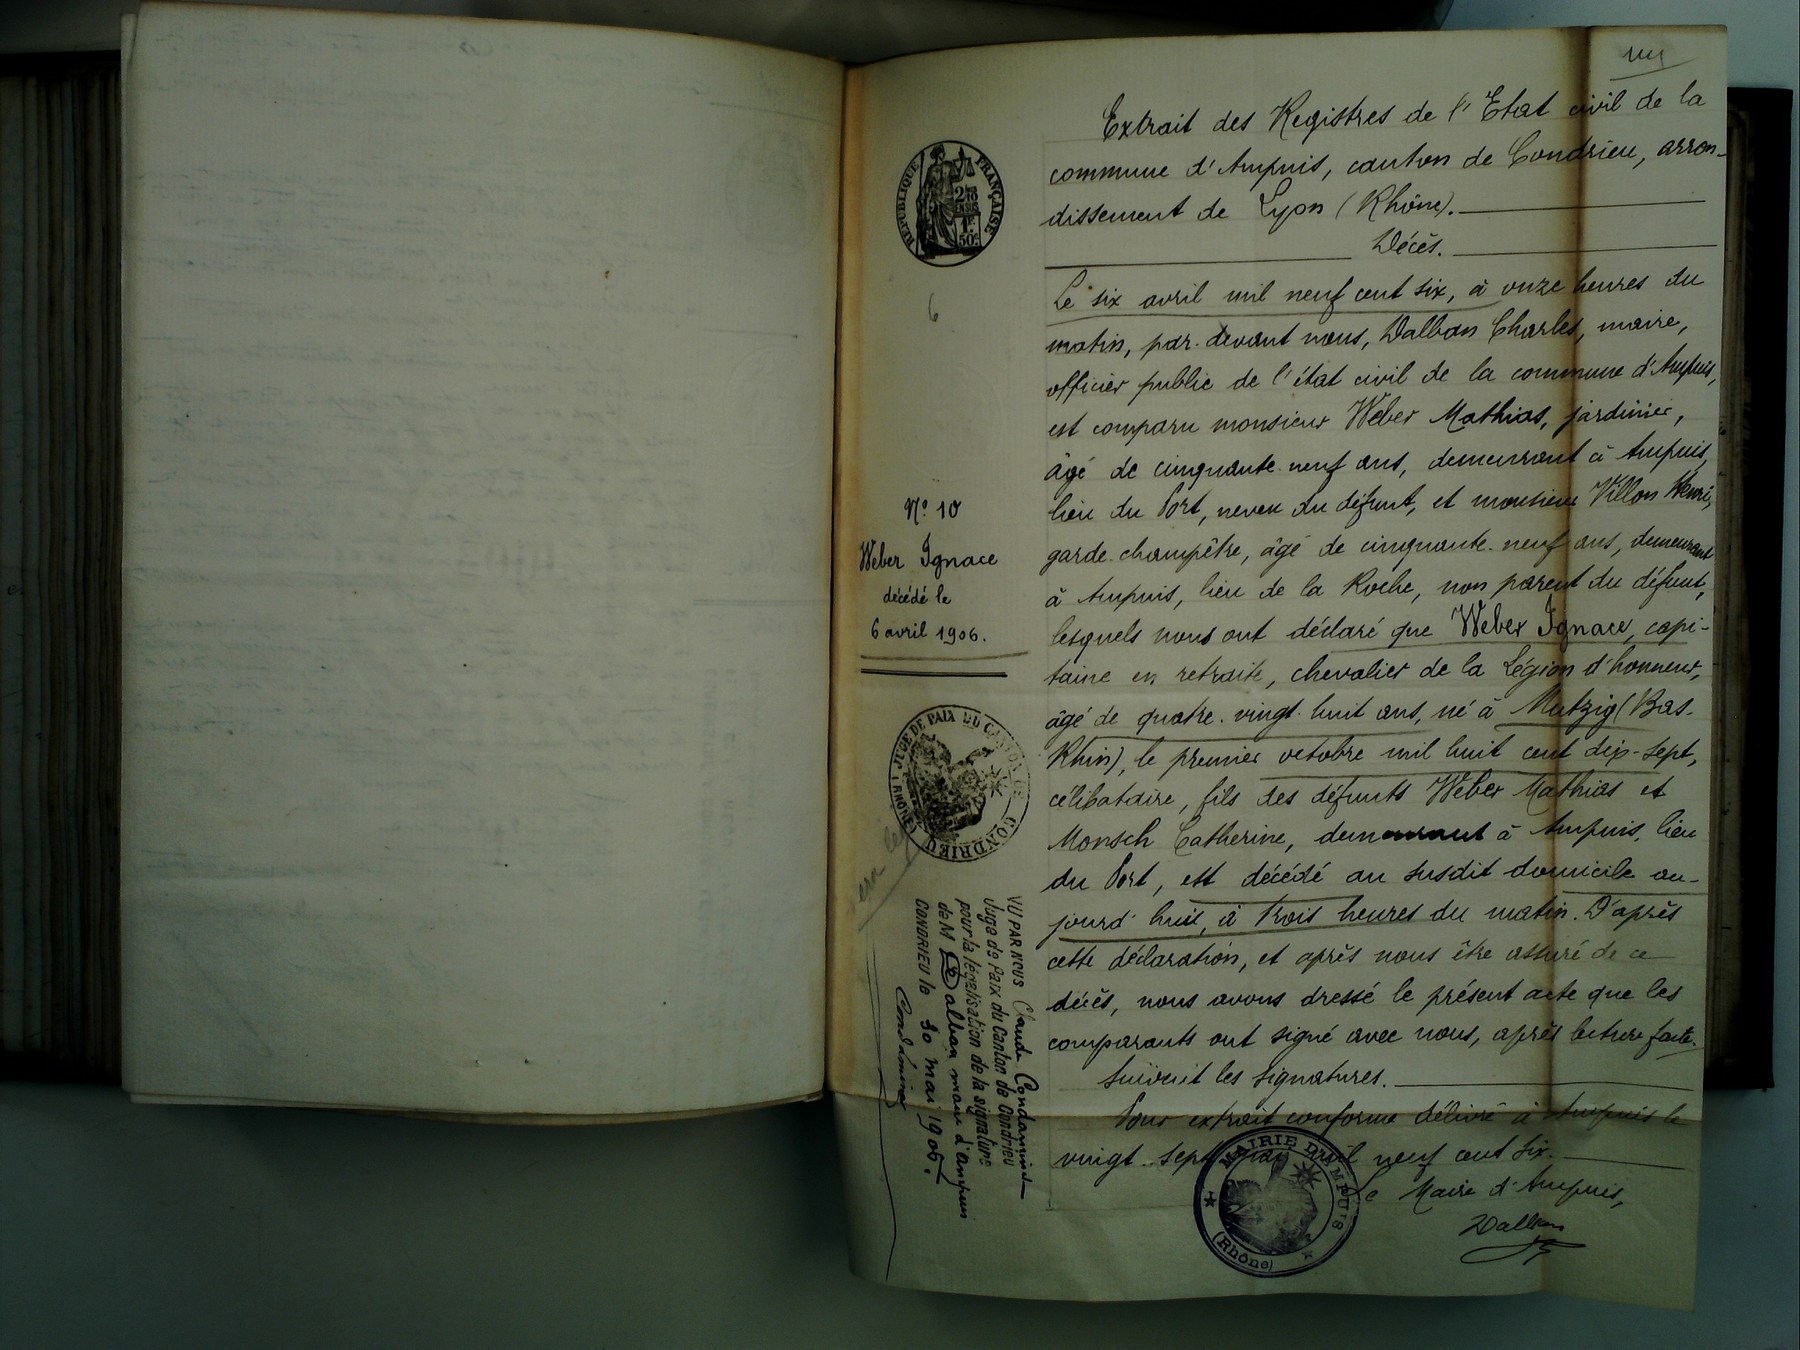 Extrait des Registres de l'Etat civil de la
commune d'Ampuis, canton de Condrieu, arron-
dissement de Lyon (Rhône).
Décès.
Le six avril mil neuf cent six, à onze heures du
matin, par-devant nous, Dalban Charles, maire,
officier public de l'état civil de la commune d'Ampuis,
est comparu monsieur Weber Mathias, jardinier,
âgé de cinquante-neuf ans, demeurant à Ampuis,
lieu du Port, neveu du défunt, et monsieur Villon Henri,
garde-champêtre, âgé de cinquante-neuf ans, demeurant
à Ampuis, lieu de la Roche, non parent du défunt,
lesquels nous ont déclaré que Weber Ignace, capi-
taine en retraite, chevalier de la Légion d'honneur,
âgé de quatre-vingt-huit ans, né à Mutzig (Bas-
Rhin), le premier octobre mil huit cent dix-sept,
célibataire, fils des défunts Weber Mathias et
Monsch Catherine, demeurant à Ampuis, lieu
du Port, est décédé au susdit domicile au-
jourd'hui, à trois heures du matin. D'après
cette déclaration, et après nous être assuré de ce
décès, nous avons dressé le présent acte que les
comparants ont signé avec nous, après lecture faite.
Suivent les signatures.
Pour extrait conforme délivré à Ampuis le
vingt-sept mai mil neuf cent six.
Le Maire d'Ampuis,
Dalban
MAIRIE D'AMPUIS
(Rhône)
RÉPUBLIQUE FRANÇAISE
2/10
EN SUS
1F
50c
6
N° 10
Weber Ignace
décédé le
6 avril 1906.
JUGE DE PAIX DU CANTON DE CONDRIEU
(RHÔNE)
VU PAR NOUS Claude Condamin
Juge de Paix du Canton de Condrieu
pour la légalisation de la signature
de M Dalban maire d'Ampuis
CONDRIEU le 30 mai 1906.
Condamin